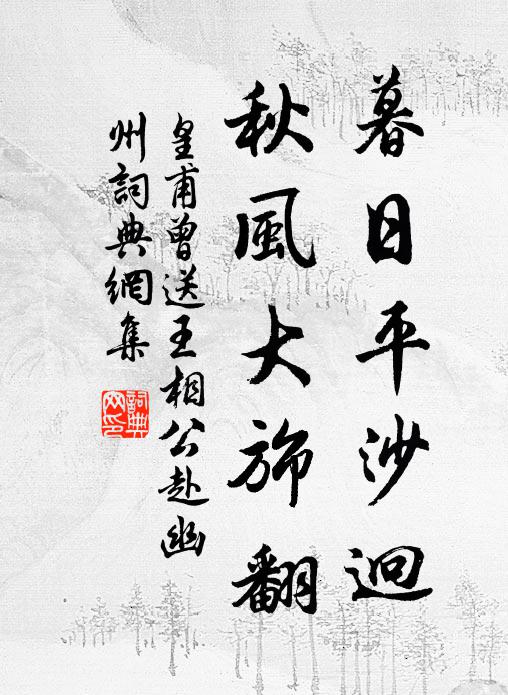 暮日平沙迥
秋風大斾翻
皇甫曾送王相公赴幽
州詞典網集
詞典
网印